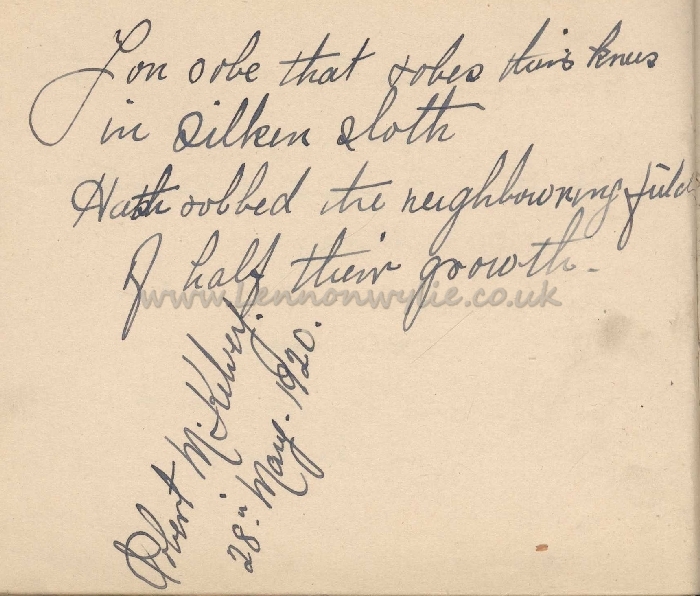 Yon robe that robes their knees
in silken sloth
Hath robbed the neighbowring field
Of half their growth.
www.Lennonwylie.co.uk
Robert McKelvey.
28" May. 1920.